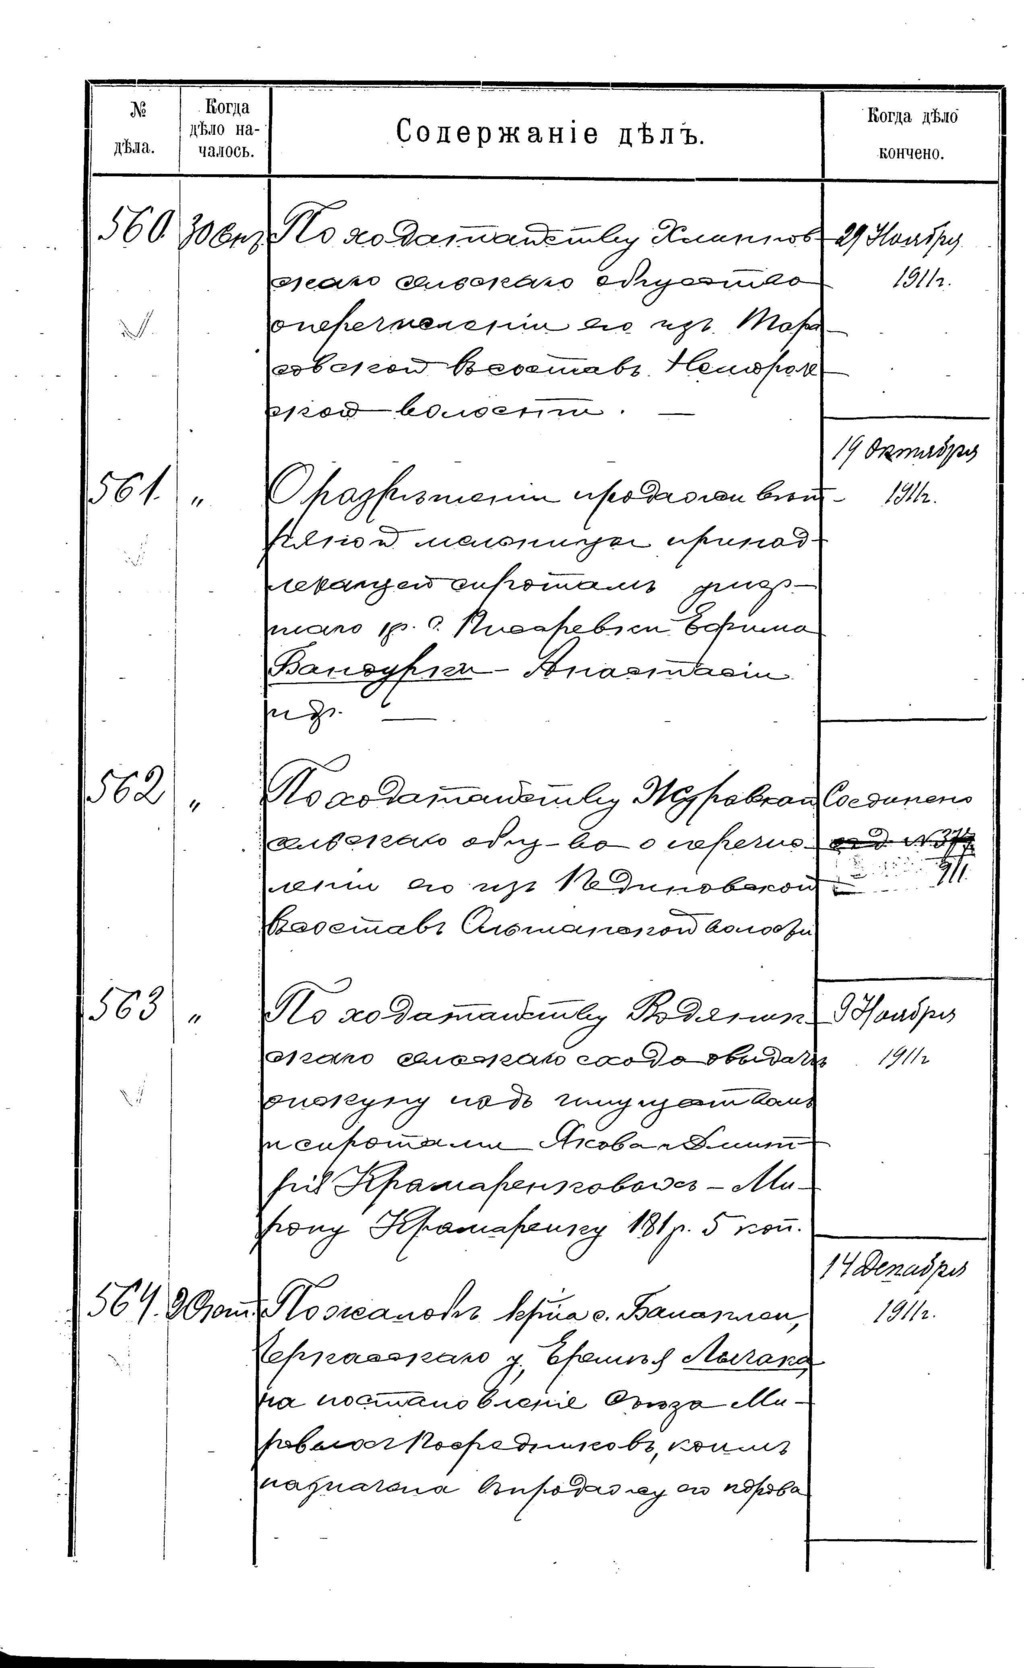 № дѣла.
Когда дѣло началось.
Содержаніе дѣлъ.
Когда дѣло кончено.
560.
По ходатайству
скаго сельскаго общества
о перечисленіи его изъ Тара
совской въ составъ
ской волости. —
29 Ноября
1911г.
561. "
О разрѣшеніи продажи вѣт
ряной мельницы принад
лежащей сиротамъ
кр. с. Писаревки Ефима
Бандурки – Анастасіи
и др. —
19 Октября
1911г.
562 "
По ходатайству Журавской
сельскаго общ-ва о перечис
леніи его изъ
въ составъ Ольшанской волости
Соединено
с д. № 377
911
563 "
По ходатайству Водяник
скаго сельскаго схода о выдачѣ
опекуну надъ имуществомъ
и сиротами Якова и Дмит
рія Крамаренковыхъ – Ми-
рону Крамаренку 181 р. 5 коп.
9 Ноября
1911г
564.
По жалобѣ кр-на с. Балаклеи,
Черкасскаго у, Еремѣя Лысака
на постановленіе Съѣзда Ми-
ровыхъ Посредниковъ, коимъ
назначена въ продажу его корова
14 Декабря
1911г.